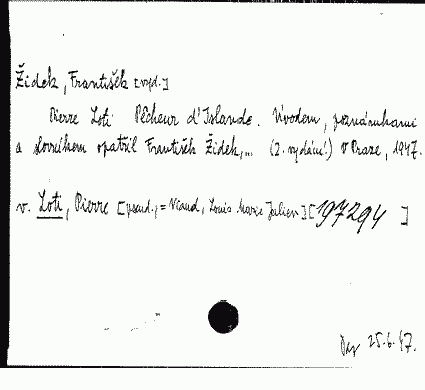 Židek, František [vyd.]
Pierre Loti Pêcheur d'Islande. Úvodem, poznámkami
a slovníkem opatřil František Židek,... (2. vydání) V Praze, 1947.
v. Loti, Pierre [pseud., = Viaud, Louis Marie Julien] [197294]
25.6.47.